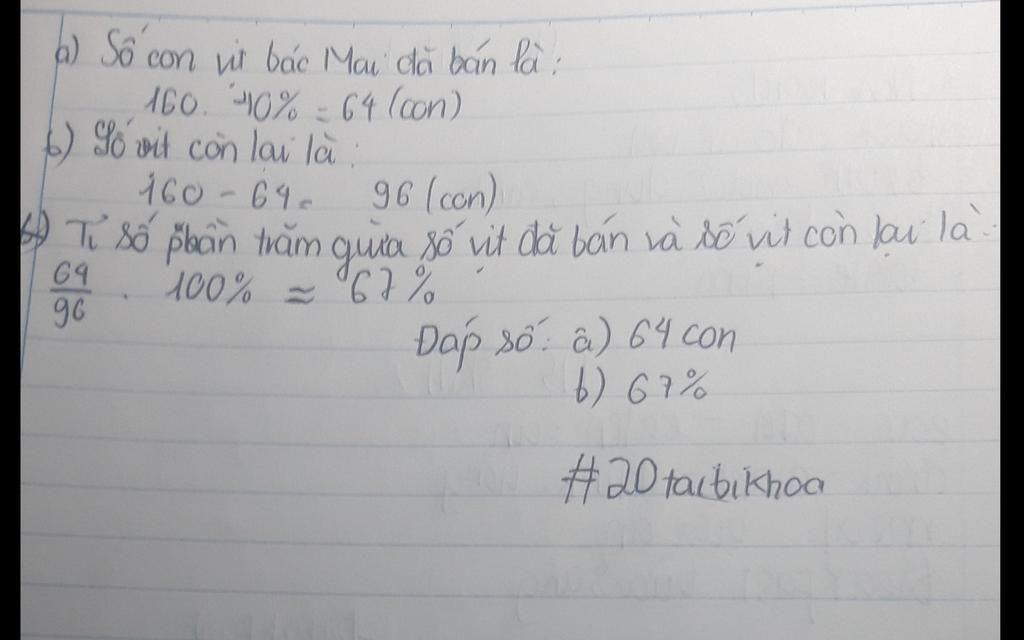 a) Số con vịt bác Mai đã bán là:
160 . 40% = 64 (con)
b) Số vịt còn lại là:
160 - 64 = 96 (con)
Tỉ số phần trăm giữa số vịt đã bán và số vịt còn lại là:
64/96 . 100% ≈ 67%
Đáp số: a) 64 con
b) 67%
#20taibikhoa